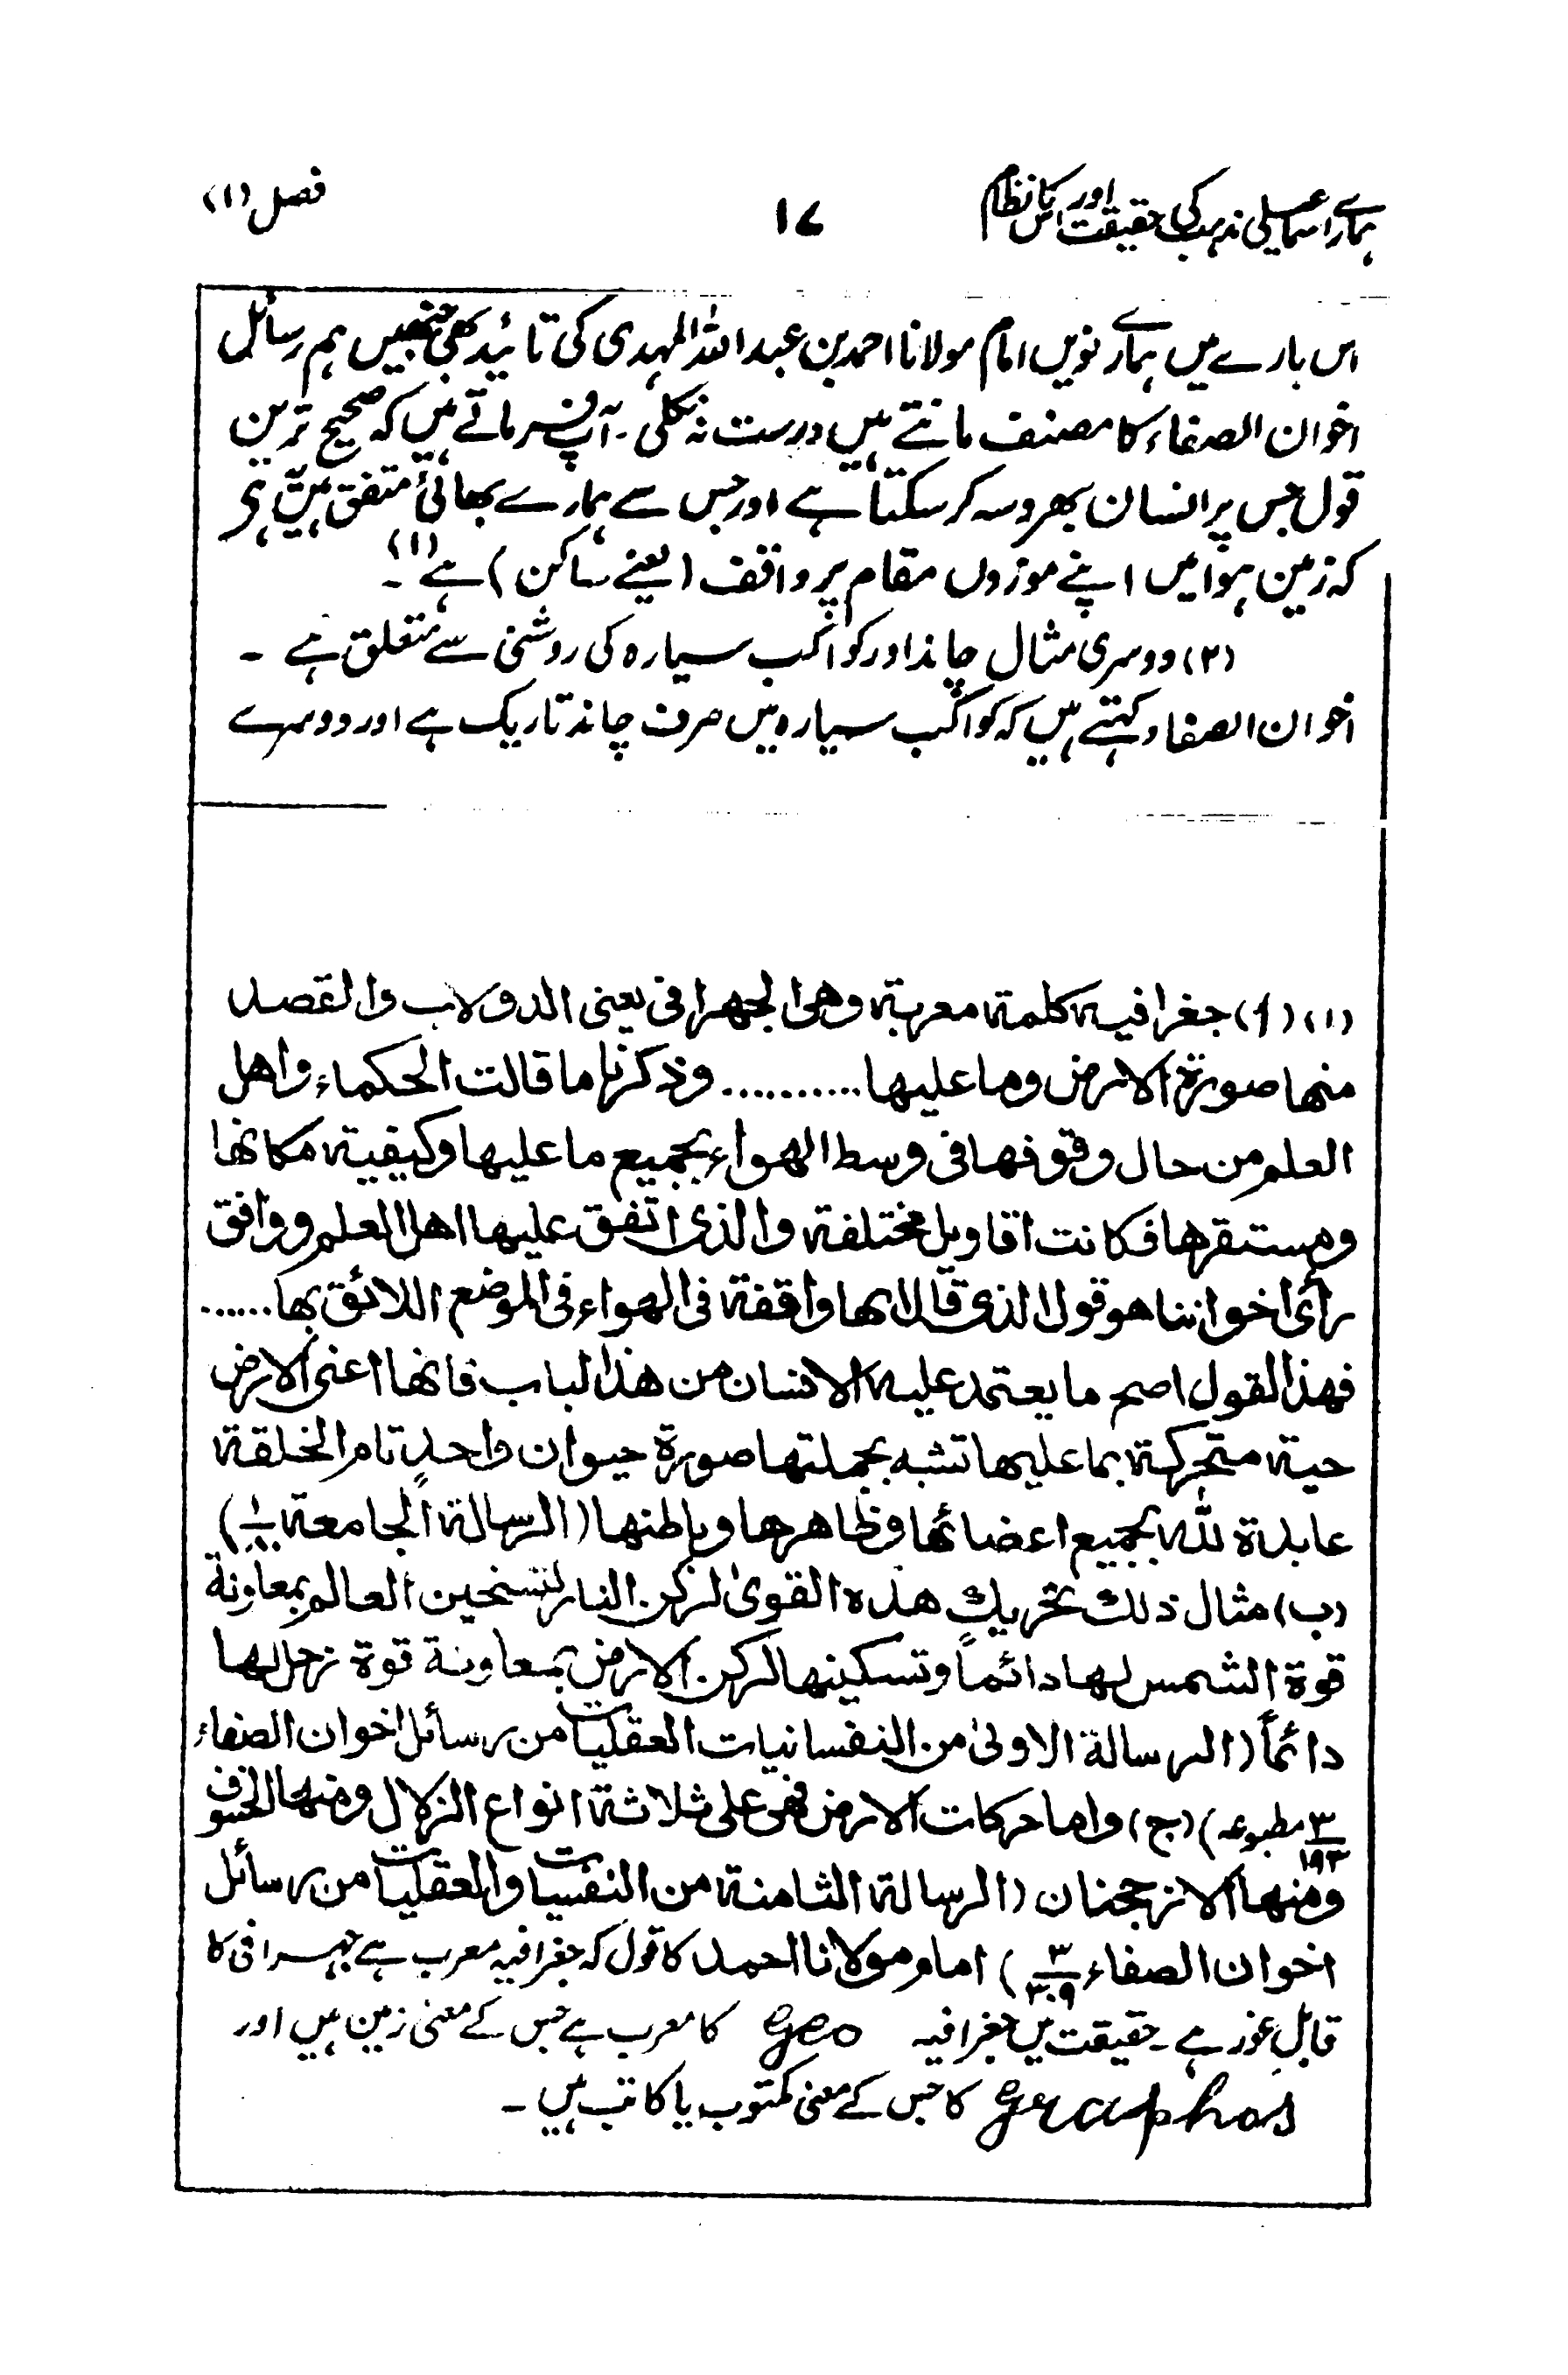 ہمارے اسماعیلی مذہب کی حقیقت اور اس کا نظام ۱۷ فصل (۱)
اس بارے میں ہمارے نویں امام مولانا احمد بن عبد اللہ المہدی کی تائید بھی جنھیں ہم رسائل
اخوان الصفاء کا مصنف مانتے ہیں درست نہ نکلی ۔ آپ فرماتے ہیں کہ صحیح ترین
قول جس پر انسان بھروسہ کر سکتا ہے اور جس سے ہمارے بھائی متفق ہیں یہ ہی
کہ زمین ہوا میں اپنے موزوں مقام پر واقف (یعنے ساکن) ہے (۱)۔
(۲) دوسری مثال چاند اور کواکب سیارہ کی روشنی سے متعلق ہے ۔
اخوان الصفاء کہتے ہیں کہ کواکب سیارہ میں صرف چاند تاریک ہے اور دوسرے
(۱) (أ) جغرافیہ کلمة معربة وھی الجھرافی یعنی الدولاب والقصد
منھا صورة الارض وما علیھا .......... وذکرنا ما قالت الحکماء واھل
العلم من حال وقوفھا فی وسط الھواء بجمیع ما علیھا وکیفیة مکانھا
ومستقرھا فکانت اقاویل مختلفة والذی اتفق علیھا اھل العلم ووافق
رأی اخواننا ھو قول الذی قال انھا واقفة فی الھواء فی الموضع اللائق بھا ......
فھذا القول اصح ما یعتمد علیہ الانسان من ھذا الباب فانھا اعنی الارض
حیة متحرکة بما علیھا تشبہ بجملتھا صورة حیوان واحدٍ تام الخلقة
عابدة للّٰہ بجمیع اعضائھا وظاھرھا وباطنھا (الرسالة الجامعة)
(ب) مثال ذلك تحریك ھذہ القویٰ لرکن النار لتسخین العالم بمعاونة
قوة الشمس لھا دائماً وتسکینھا لرکن الارض بمعاونة قوة زحل لھا
دائماً (الرسالة الاولیٰ من النفسانیات العقلیات من رسائل اخوان الصفاء
۳/۱۹۳ مطبوعہ) (ج) واما حرکات الارض فھی علی ثلاثة انواع الزلازل ومنھا الخسوف
ومنھا الانرجحنان (الرسالة الثامنة من النفسیات والعقلیات من رسائل
اخوان الصفاء ۳/۳۰۹) امام مولانا احمد کا قول کہ جغرافیہ معرب ہے جہرافی کا
قابلِ غور ہے ۔ حقیقت میں جغرافیہ geo کا معرب ہے جس کے معنی زمین ہیں اور
graphos کا جس کے معنی مکتوب یا کاتب ہیں ۔